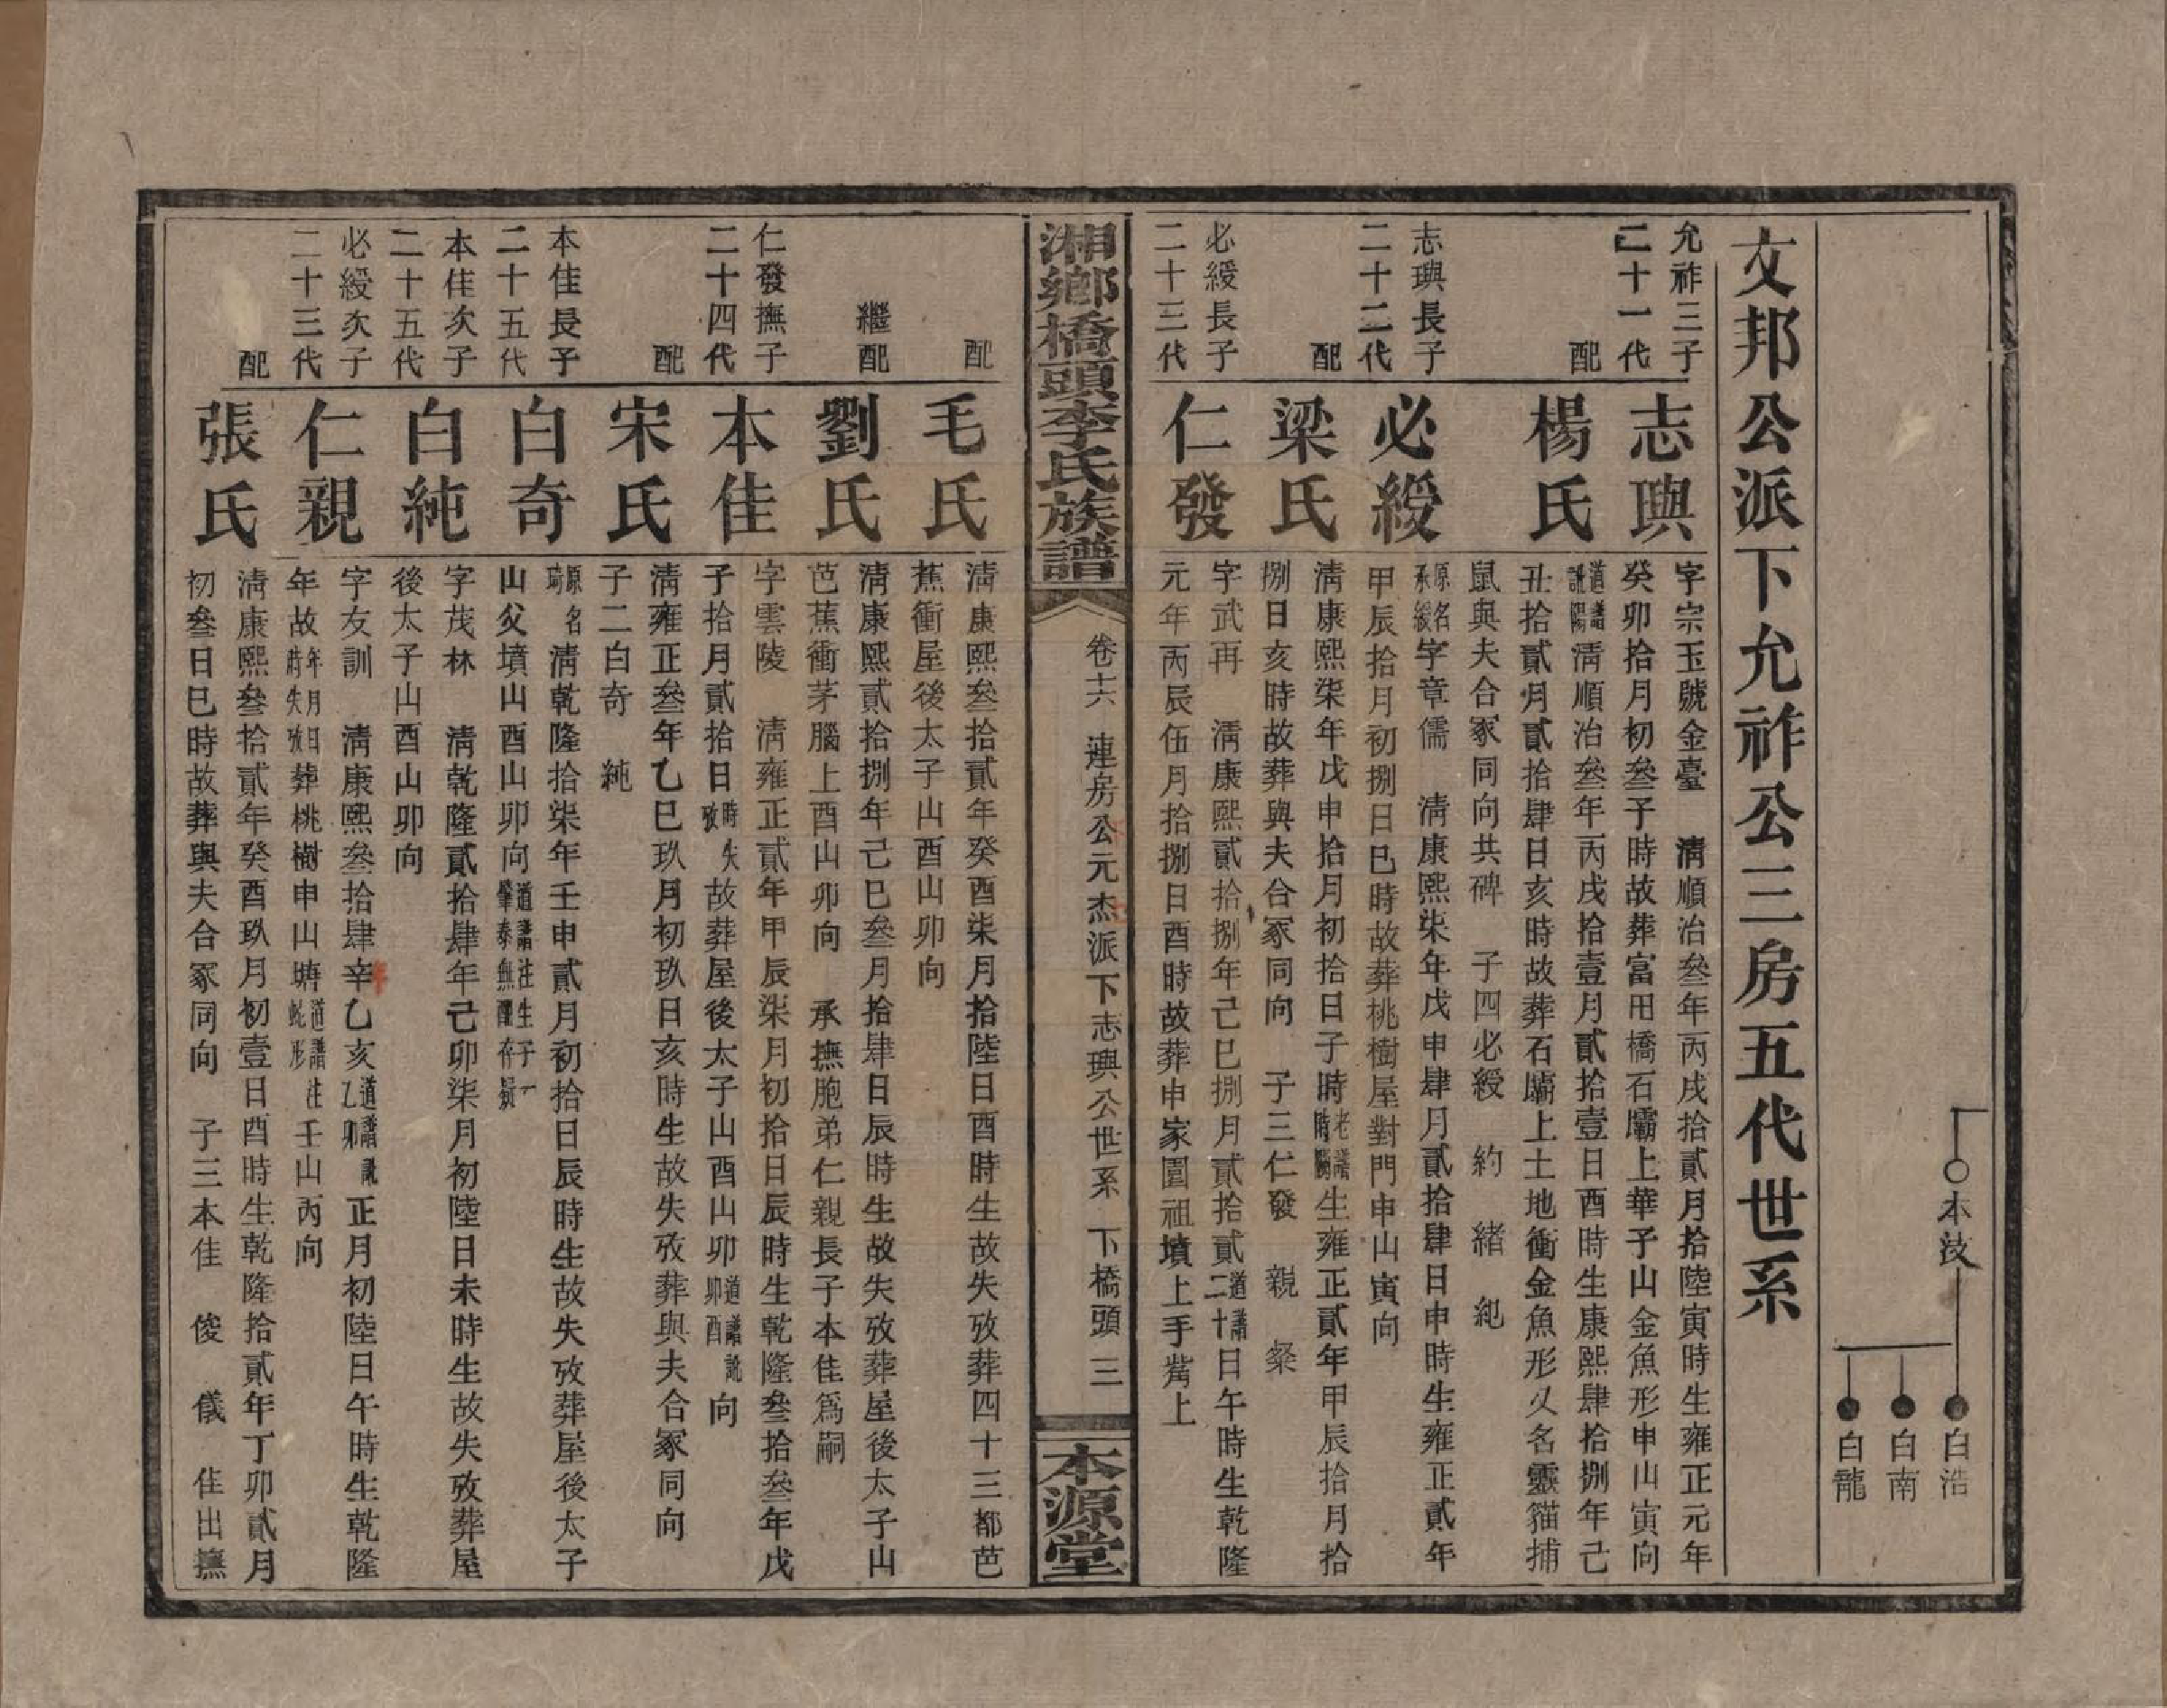 本汥
白浩
白南
白龍
文邦公派下允祚公三房五代世系
允祚三子
二十一代
志璵
字宗玉號金臺 淸順治叄年丙戌拾貳月拾陸寅時生雍正元年
癸卯拾月初叄子時故葬富田橋石壩上華子山金魚形申山寅向
配
楊氏
道譜訛陽淸順治叄年丙戌拾壹月貳拾壹日酉時生康熙肆拾捌年己
丑拾貳月貳拾肆日亥時故葬石壩上土地衝金魚形乆名靈猫捕
鼠與夫合冢同向共碑 子四必綬 約 緒 純
志璵長子
二十二代
必綬
原名承綬字章儒 淸康熙柒年戊申肆月貳拾肆日申時生雍正貳年
甲辰拾月初捌日巳時故葬桃樹屋對門申山寅向
配
梁氏
淸康熙柒年戊申拾月初拾日子時老譜生雍正貳年甲辰拾月拾
捌日亥時故葬與夫合冢同向 子三仁發 親 粲
必綬長子
二十三代
仁發
字武再 淸康熙貳拾捌年己巳捌月貳拾貳道譜二十日午時生乾隆
元年丙辰伍月拾捌日酉時故葬申家園祖墳上手嵴上
湘鄉橋頭李氏族譜
卷十六 連房公元杰派下志璵公世系 下橋頭 三
本源堂
配
毛氏
淸康熙叄拾貳年癸酉柒月拾陸日酉時生故失攷葬四十三都芭
蕉衝屋後太子山酉山卯向
繼配
劉氏
淸康熙貳拾捌年己巳叄月拾肆日辰時生故失攷葬屋後太子山
芭蕉衝茅腦上酉山卯向 承撫胞弟仁親長子本佳爲嗣
仁發撫子
二十四代
本佳
字雲陵 淸雍正貳年甲辰柒月初拾日辰時生乾隆叄拾叄年戊
子拾月貳拾日時失攷故葬屋後太子山酉山卯道譜訛卯酉向
配
宋氏
淸雍正叄年乙巳玖月初玖日亥時生故失攷葬與夫合冢同向
子二白奇 純
本佳長子
二十五代
白奇
原名琦 淸乾隆拾柒年壬申貳月初拾日辰時生故失攷葬屋後太子
山父墳山酉山卯向道譜注生子一肇泰無醮存疑
本佳次子
二十五代
白純
字茂林 淸乾隆貳拾肆年己卯柒月初陸日未時生故失攷葬屋
後太子山酉山卯向
必綬次子
二十三代
仁親
字友訓 淸康熙叄拾肆年乙亥道譜訛乙卯正月初陸日午時生乾隆
年故年月日時失攷葬桃樹申山塘道譜注蛇形壬山丙向
配
張氏
淸康熙叄拾貳年癸酉玖月初壹日酉時生乾隆拾貳年丁卯貳月
初叄日巳時故葬與夫合冢同向 子三本佳 俊 儀 佳出撫